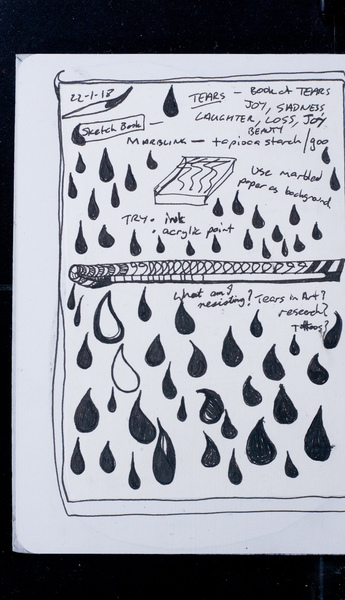 22-1-18
TEARS — BOOK of TEARS
JOY, SADNESS
LAUGHTER, LOSS, JOY
BEAUTY
Sketch Book —
MARBLING — tapioca starch/goo
Use marbled
paper as background
TRY • ink
• acrylic paint
What am I
resisting? Tears in Art?
research?
Tattoos?